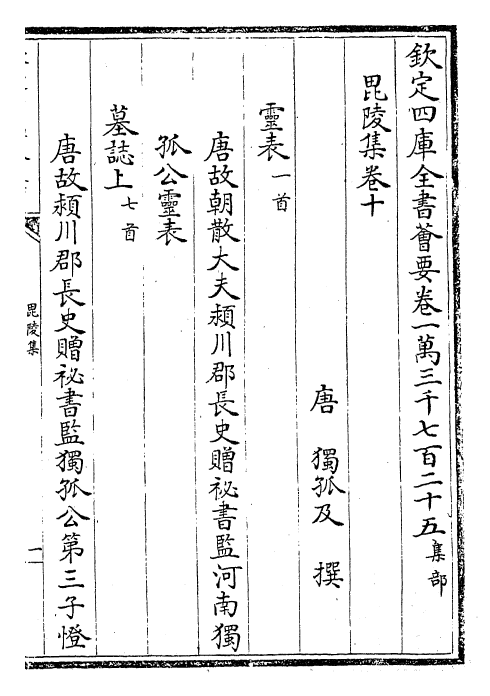 欽定四庫全書薈要卷一萬三千七百二十五集部
毘陵集卷十
唐 獨孤及 撰
靈表一首
唐故朝散大夫潁川郡長史贈祕書監河南獨
孤公靈表
墓誌上七首
唐故潁川郡長史贈祕書監獨孤公第三子憕
毘陵集
一